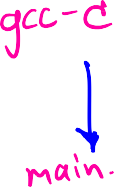 gcc-c
main.